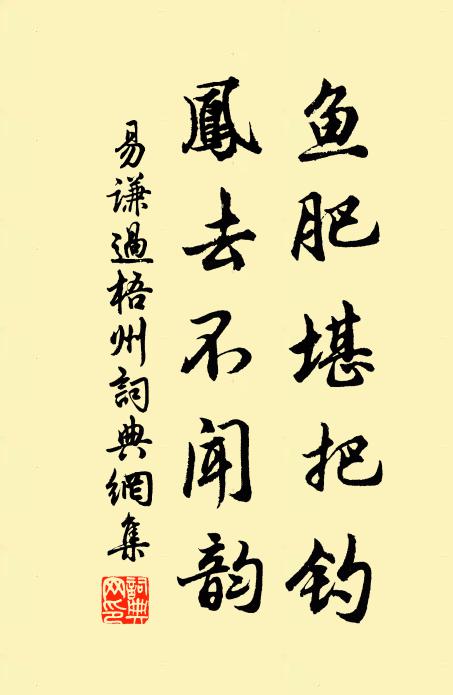 鱼肥堪把钓
鳳去不闻韵
易谦過梧州詞典網集
詞典网印